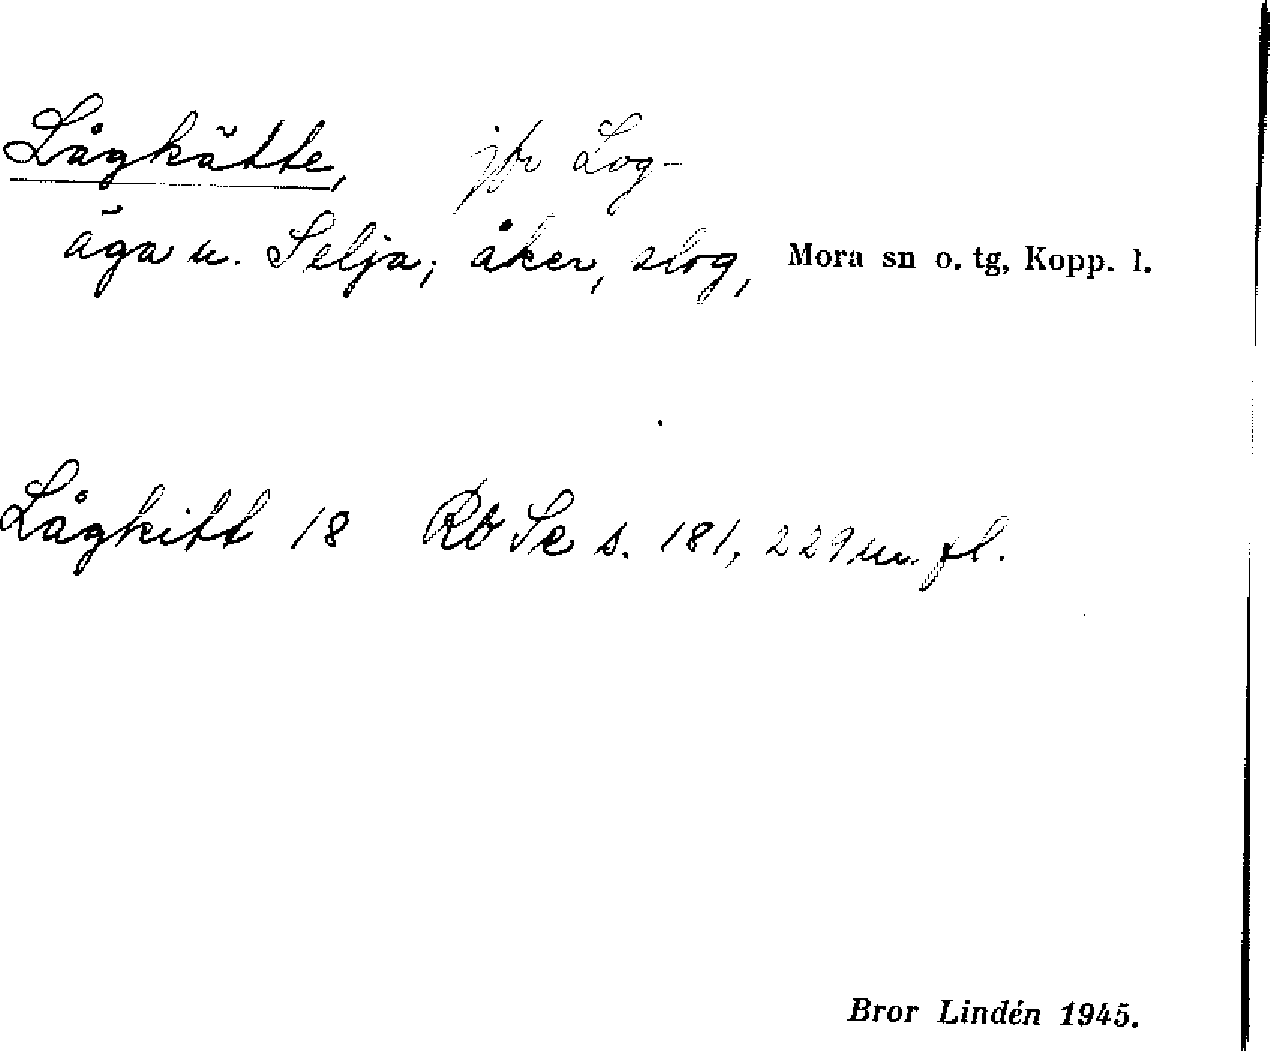 Lågkätte, jfr Log-
äga u. Selja; åker, slog, Mora sn o. tg, Kopp. l.
Lågkitt 18 Rb Se s. 181, 229 m. fl.
Bror Lindén 1945.